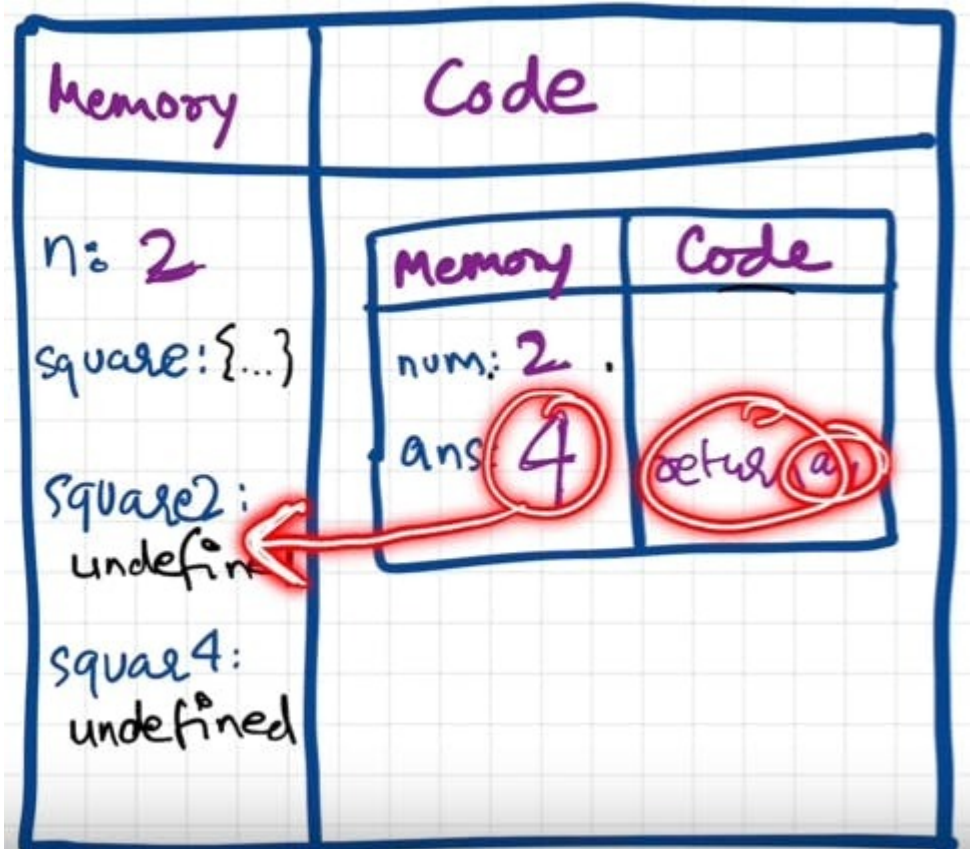 Memory
Code
n: 2
square: {...}
square2:
undefin
squar4:
undefined
Memory
Code
num: 2 .
ans: 4
retur